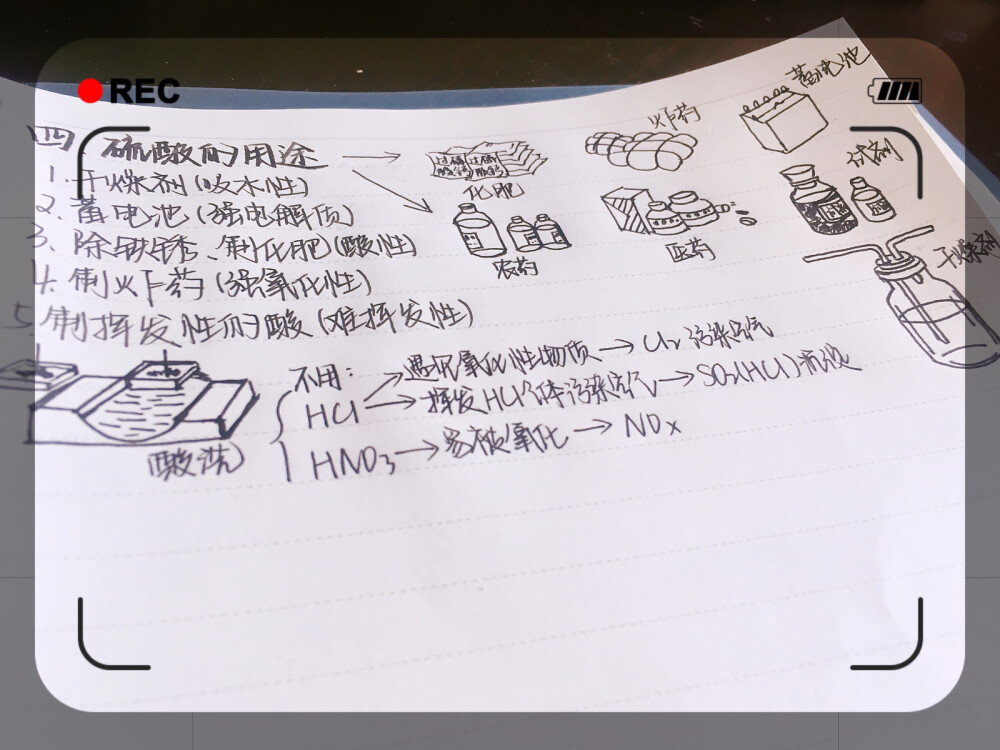 REC
四 硫酸的用途
1. 干燥剂(吸水性)
2. 蓄电池(强电解质)
3. 除铁锈、制化肥(酸性)
4. 制火药(强氧化性)
5 制挥发性的酸(难挥发性)
化肥
火药
蓄电池
农药
医药
干燥剂
酸洗
不用:
HCl
遇 氧化性物质 → Cl₂ 污染空气
挥发HCl气体污染空气 → SO₂(HCl)
HNO₃ → 易被氧化 → NOx